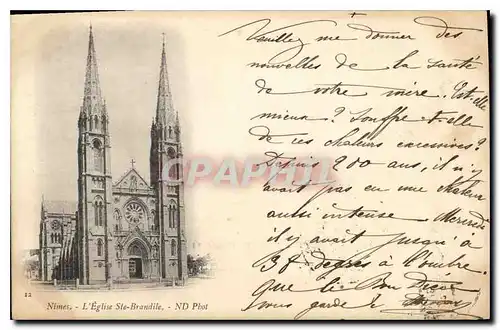 Veuillez me donner des
nouvelles de la santé
de votre mère. Est-elle
mieux? Souffre-t-elle
de ces chaleurs excessives?
Depuis 200 ans, il n'y
avait pas eu une chaleur
aussi intense Mercredi
il y avait jusqu'à
38 degrés à l'ombre.
Que le Bon Dieu
vous garde
CPARAMA
22 Nîmes. - L'Église Ste-Brandile. - ND Phot